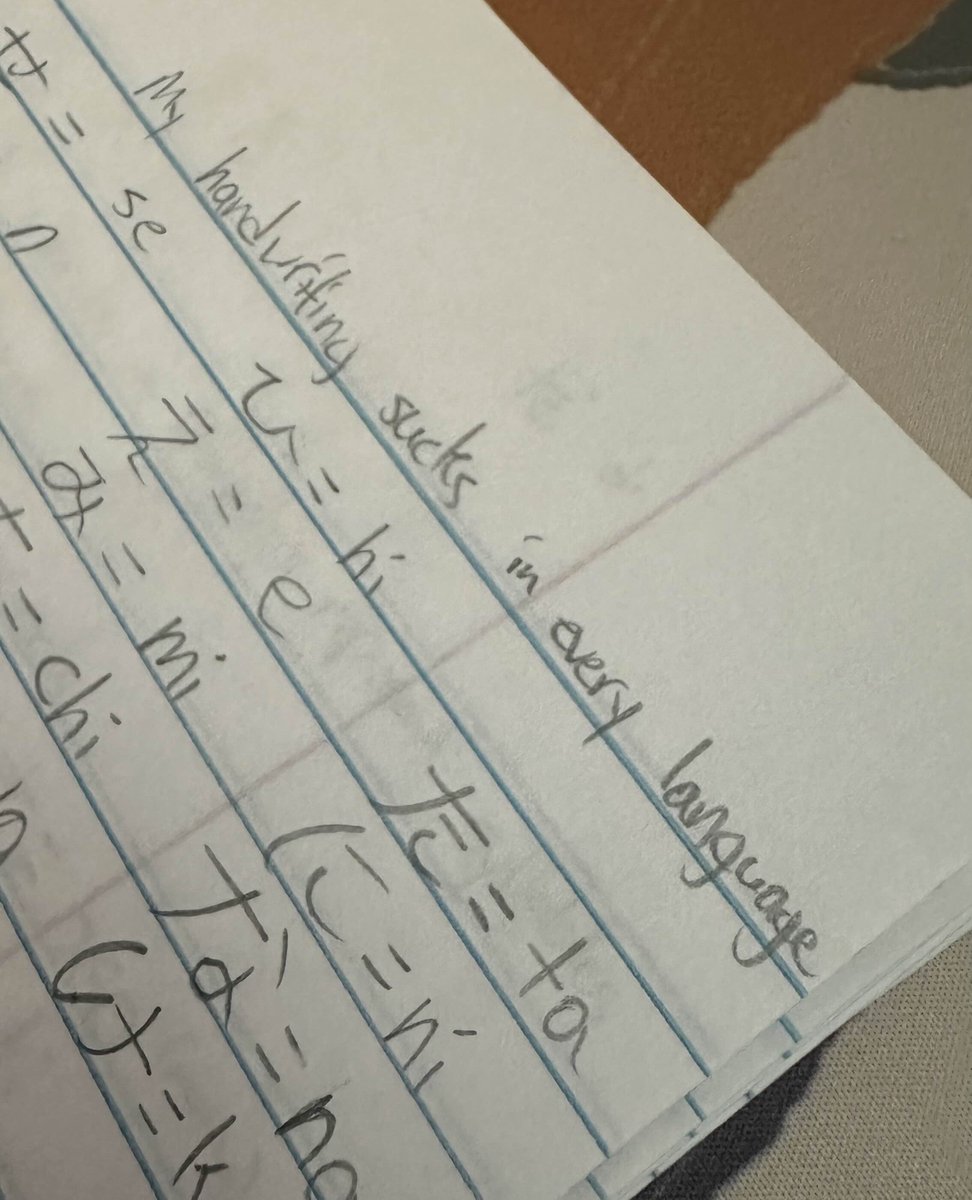 My handwriting sucks in every language
せ = se ひ = hi
n え = e た = ta
み = mi に = ni
= chi な = na
け = k